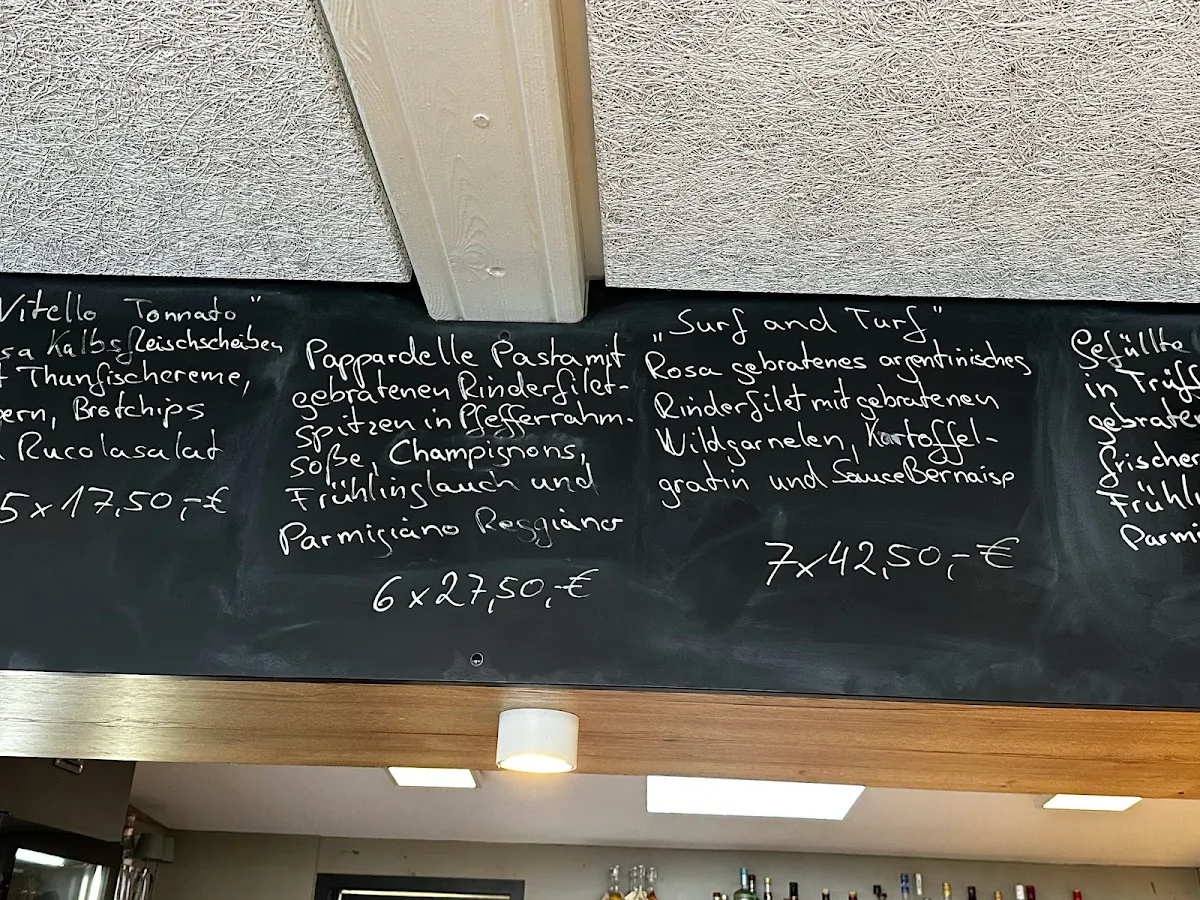 Vitello Tonnato"
sa Kalbsfleischscheiben
Thunfischcreme,
ern, Brotchips
Rucolasalat
5 x 17,50,-€
Pappardelle Pasta mit
gebratenen Rinderfilet-
spitzen in Pfefferrahm-
soße, Champignons,
Frühlingslauch und
Parmigiano Reggiano
6 x 27,50,-€
„Surf and Turf"
Rosa gebratenes argentinisches
Rinderfilet mit gebratenen
Wildgarnelen, Kartoffel-
gratin und Sauce Bernaise
7 x 42,50,-€
Gefüllte
in Trüff
gebrate
frischer
Frühl
Parmi